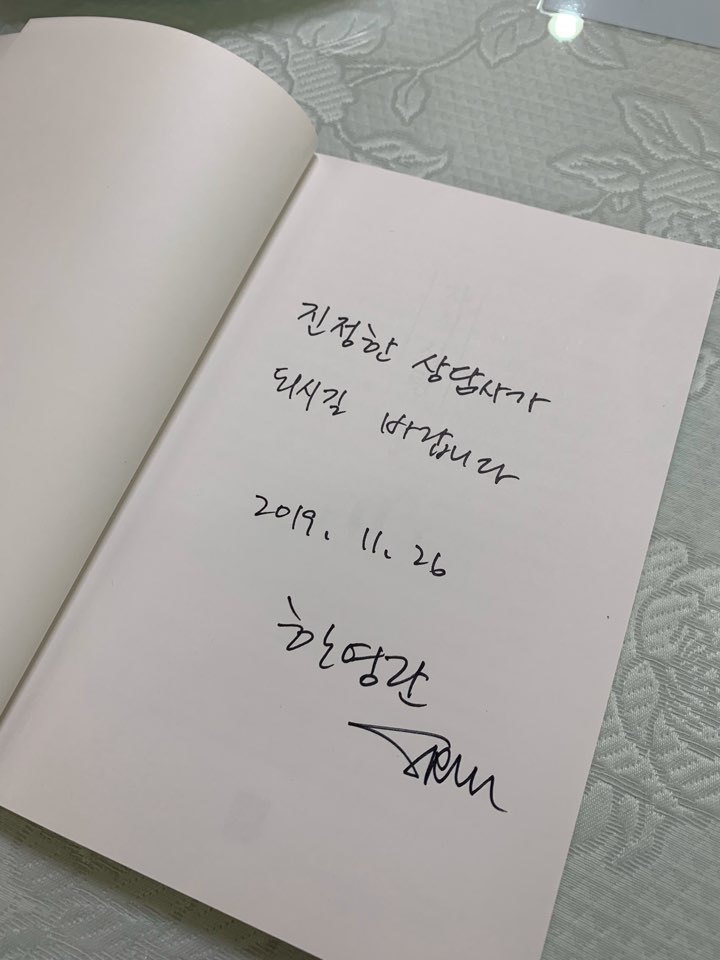 진정한 상담사가
되시길 바랍니다
2019. 11. 26
한영란